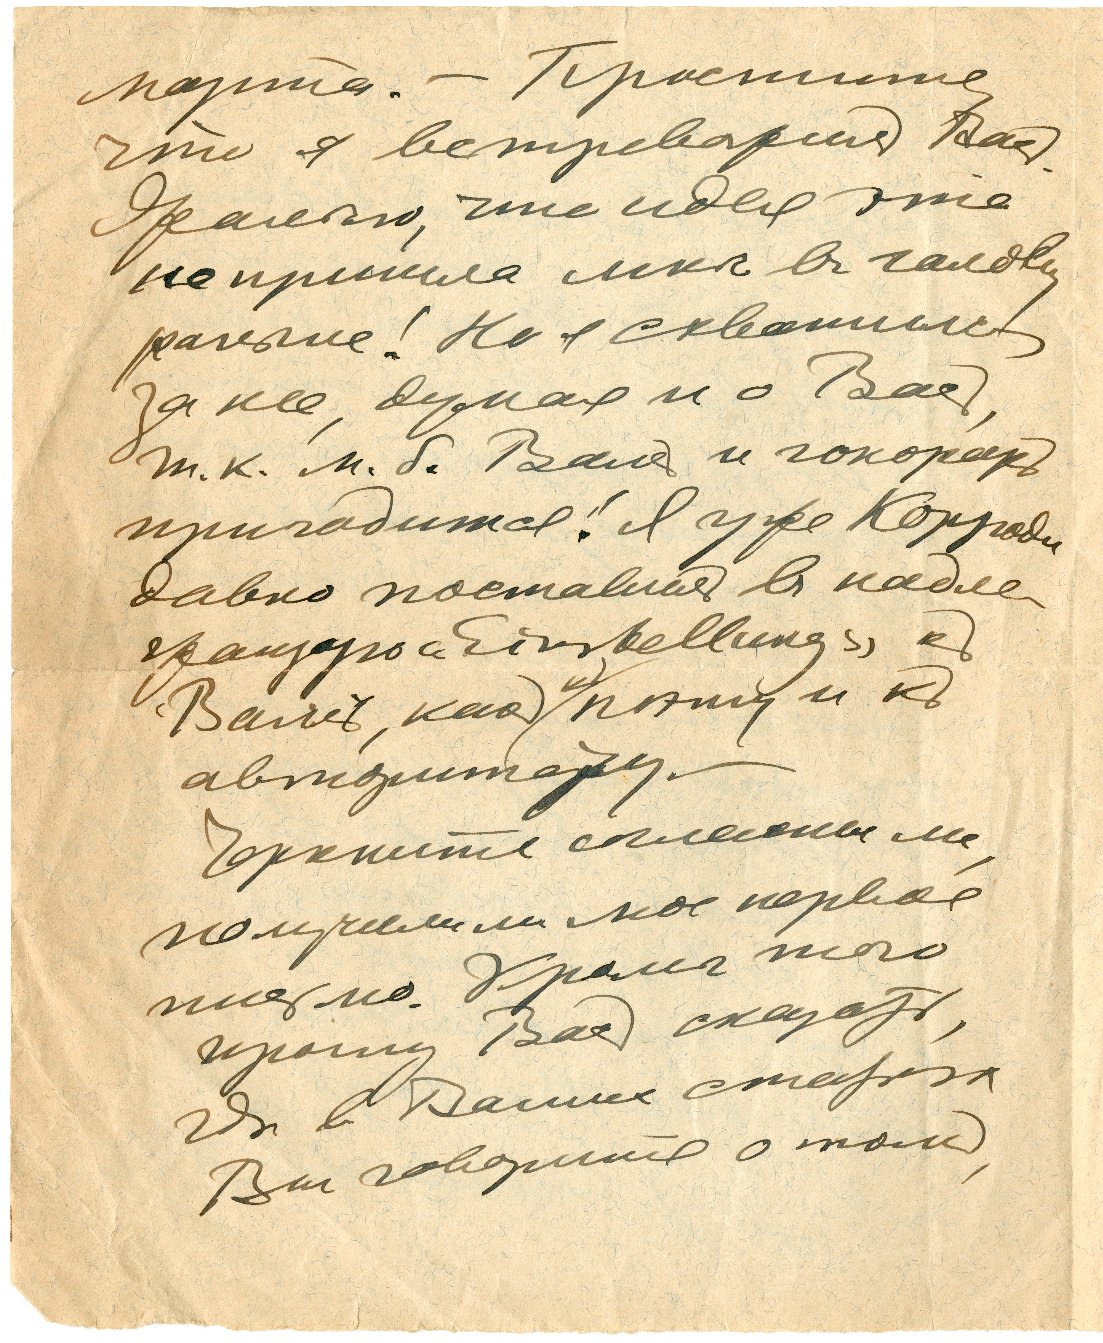 марта. — Простите,
что я встревожил Вас.
Жалею, что идея эта
не пришла мнѣ въ голову
раньше! Но я схватился
за нее, думая и о Васъ,
т.к. м.б. Вамъ и гонораръ
пригодится! Я уже Корроди
давно поставилъ въ надле-
жащую «Einstellung» къ
Вамъ, какъ къ поэту и къ
авторитету. —
Черкните согласны ли,
получили ли мое первое
письмо. Кромѣ того
прошу Васъ сказать,
гдѣ в Ваших статьях
Вы говорите о томъ,